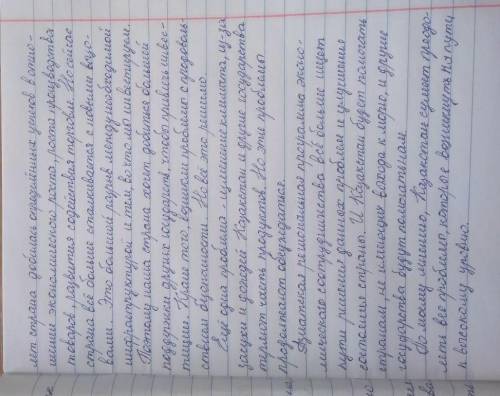 лет страна добилась определённых успехов в отно-
шении экономического роста, роста производства
товаров, развития содействия торговли. Но сейчас
страна всё больше сталкивается с новыми вызо-
вами. Это большой разрыв между необходимой
инфраструктурой и тем, во что мы инвестируем.
Поэтому наша страна хочет добиться большей
поддержки других государств, чтобы привлечь инвес-
тиции. Кроме того, возникли проблемы с продоволь-
ственной безопасности. Но всё это решимо.
Ещё одна проблема - изменение климата, из-за
засухи и дождей Казахстан и другие государства
теряют часть продуктов. Но эти проблемы
продолжают обсуждаться.
Азиатская региональная программа эконо-
мического сотрудничества всё больше ищет
пути решения данных проблем и улучшения
состояния страны. И Казахстан будет помогать
странам, не имеющих выхода к морю, и другие
государства будут помогать нам.
По моему мнению, Казахстан сумеет преодо-
леть все проблемы, которые возникнут на пути
к высокому уровню.